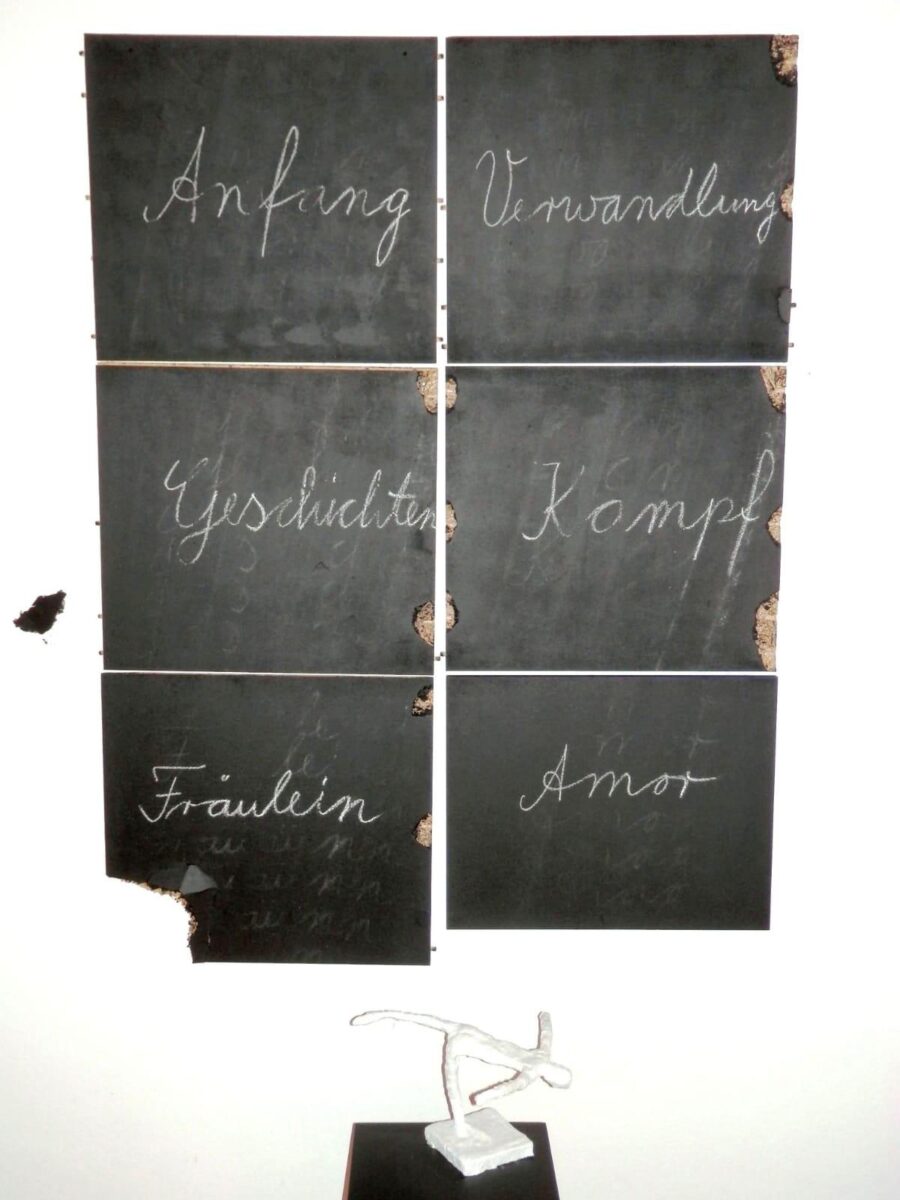 Anfang
Verwandlung
Geschichten
Kampf
Fräulein
Amor